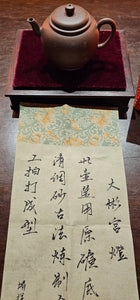 大彬宮燈
此壺選用原礦底
清調砂古法煉製
工拍打成型